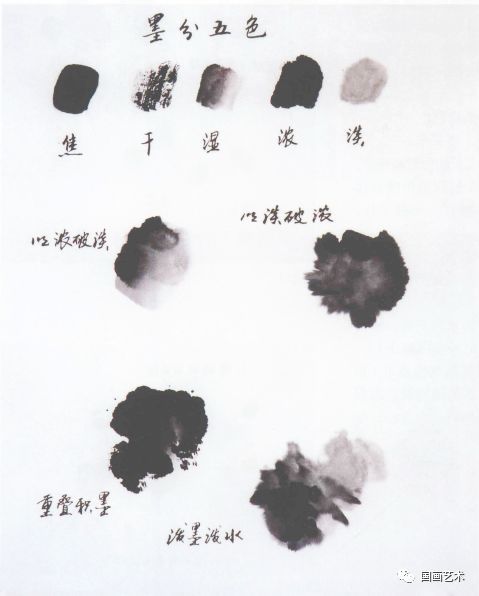 墨分五色
焦 干 湿 浓 淡
以浓破淡
以淡破浓
重叠积墨
泼墨泼水
国画艺术